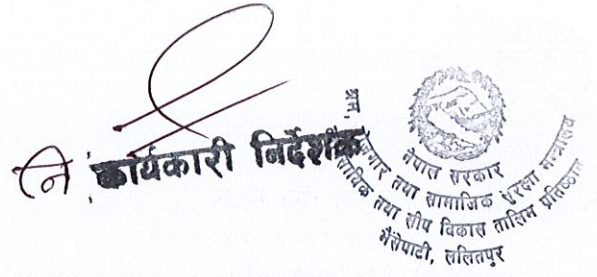 नि. कार्यकारी निर्देशक
नेपाल सरकार
श्रम, रोजगार तथा सामाजिक सुरक्षा मन्त्रालय
व्यावसायिक तथा सीप विकास तालिम प्रतिष्ठान
भैंसेपाटी, ललितपुर